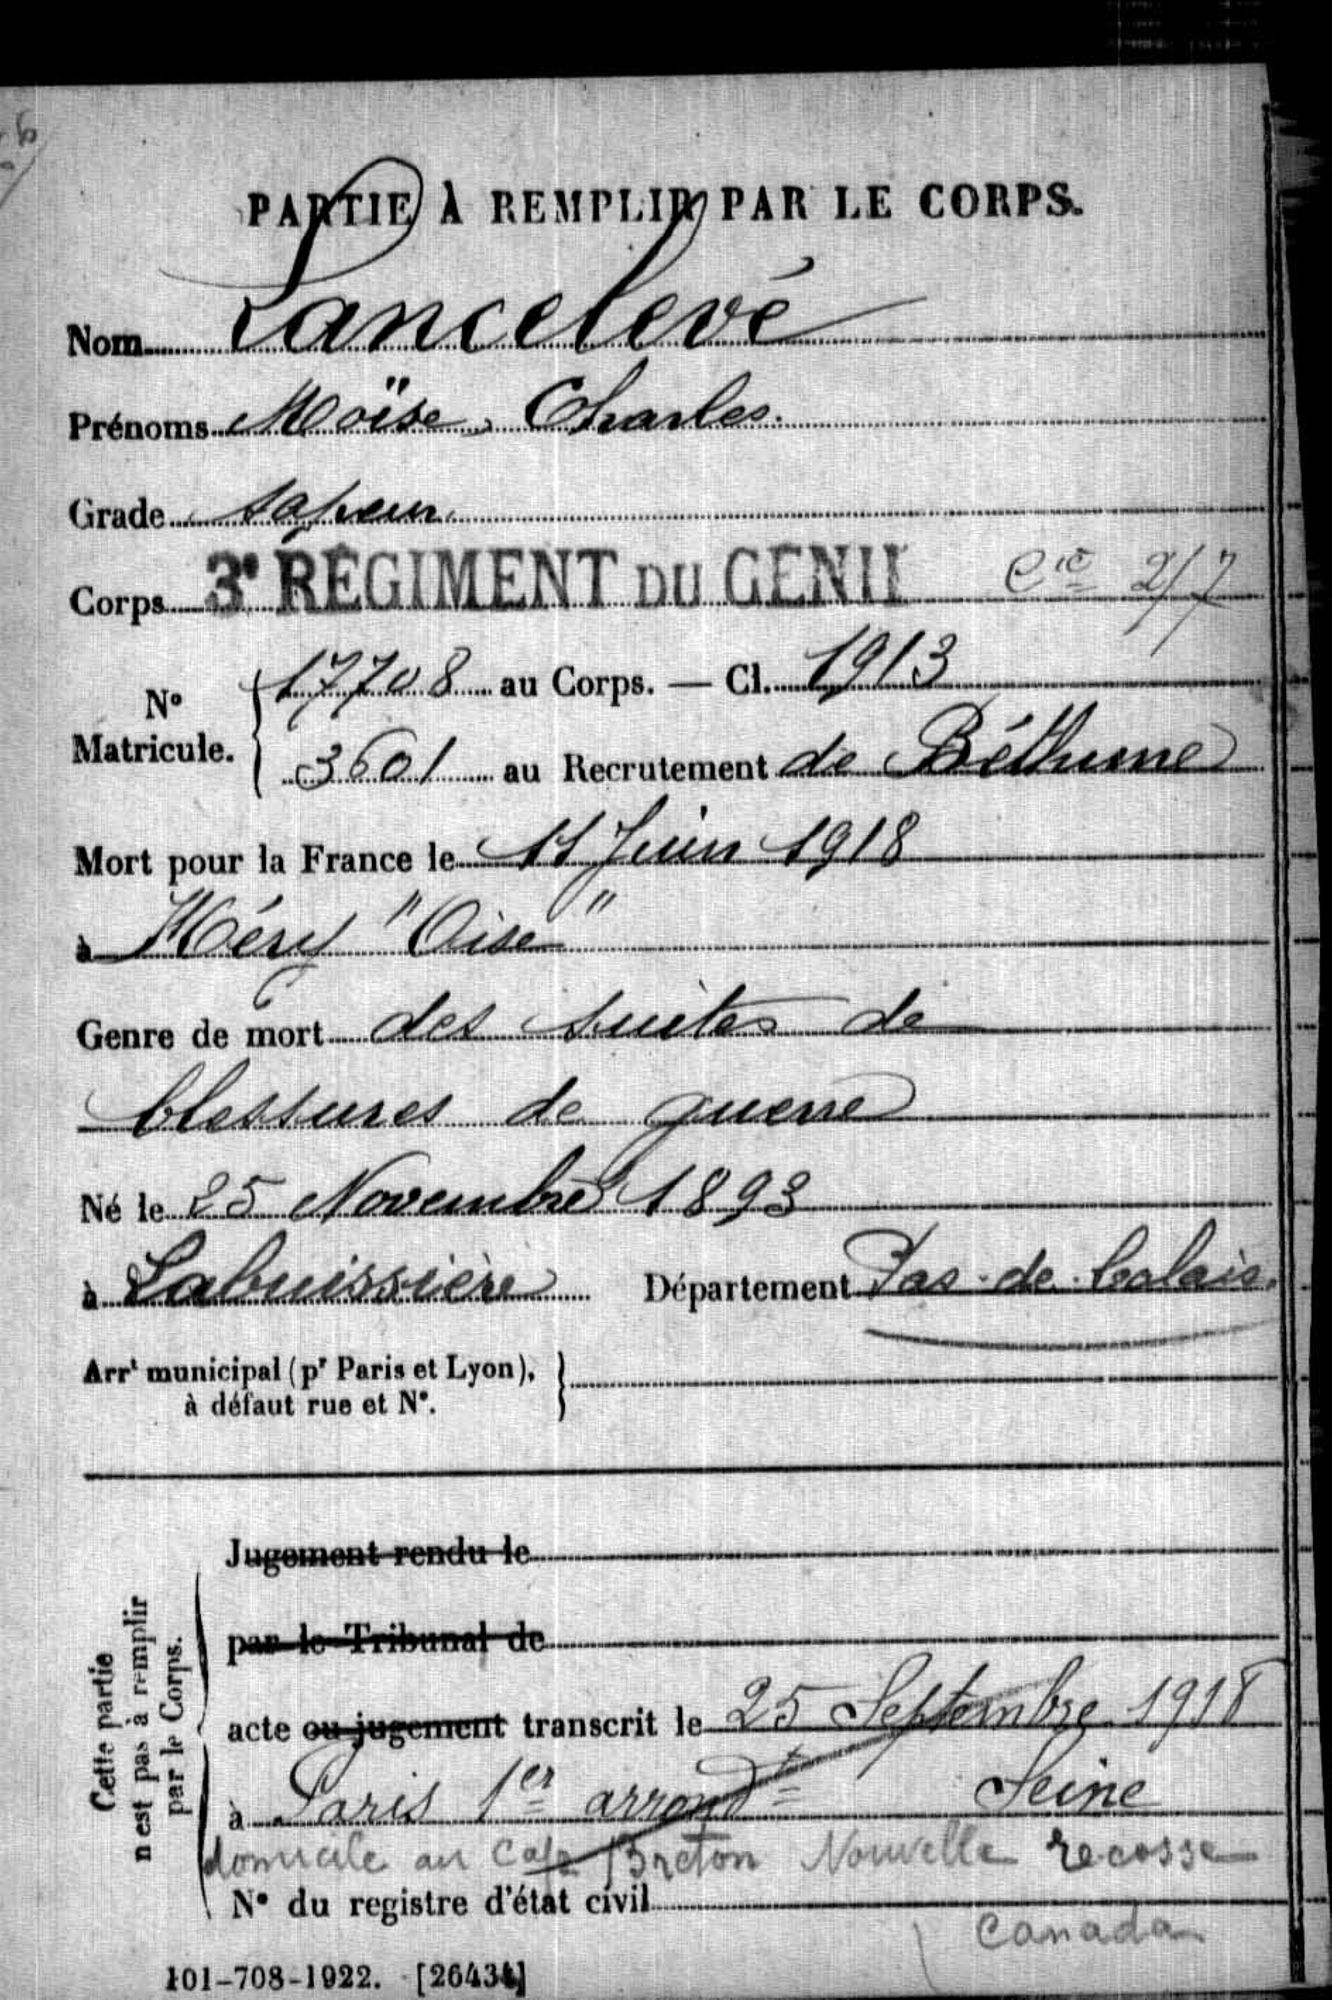 PARTIE À REMPLIR PAR LE CORPS.
Nom Lancelevé
Prénoms Moïse, Charles.
Grade sapeur.
Corps 3e RÉGIMENT DU GÉNIE Cie 2/7
No Matricule. { 17708 au Corps. — Cl. 1913
3601 au Recrutement de Béthune
Mort pour la France le 11 Juin 1918
à Méry "Oise"
Genre de mort des suites de
blessures de guerre
Né le 25 Novembre 1893
à Labuissière Département Pas-de-Calais.
Arrt municipal (pr Paris et Lyon), }
à défaut rue et No.
Cette partie
n'est pas à remplir
par le Corps.
Jugement rendu le
par le Tribunal de
acte ou jugement transcrit le 25 Septembre 1918
à Paris 1er arrondt Seine
domicile au Cap Breton Nouvelle Recosse
No du registre d'état civil
Canada
101-708-1922. [26434]